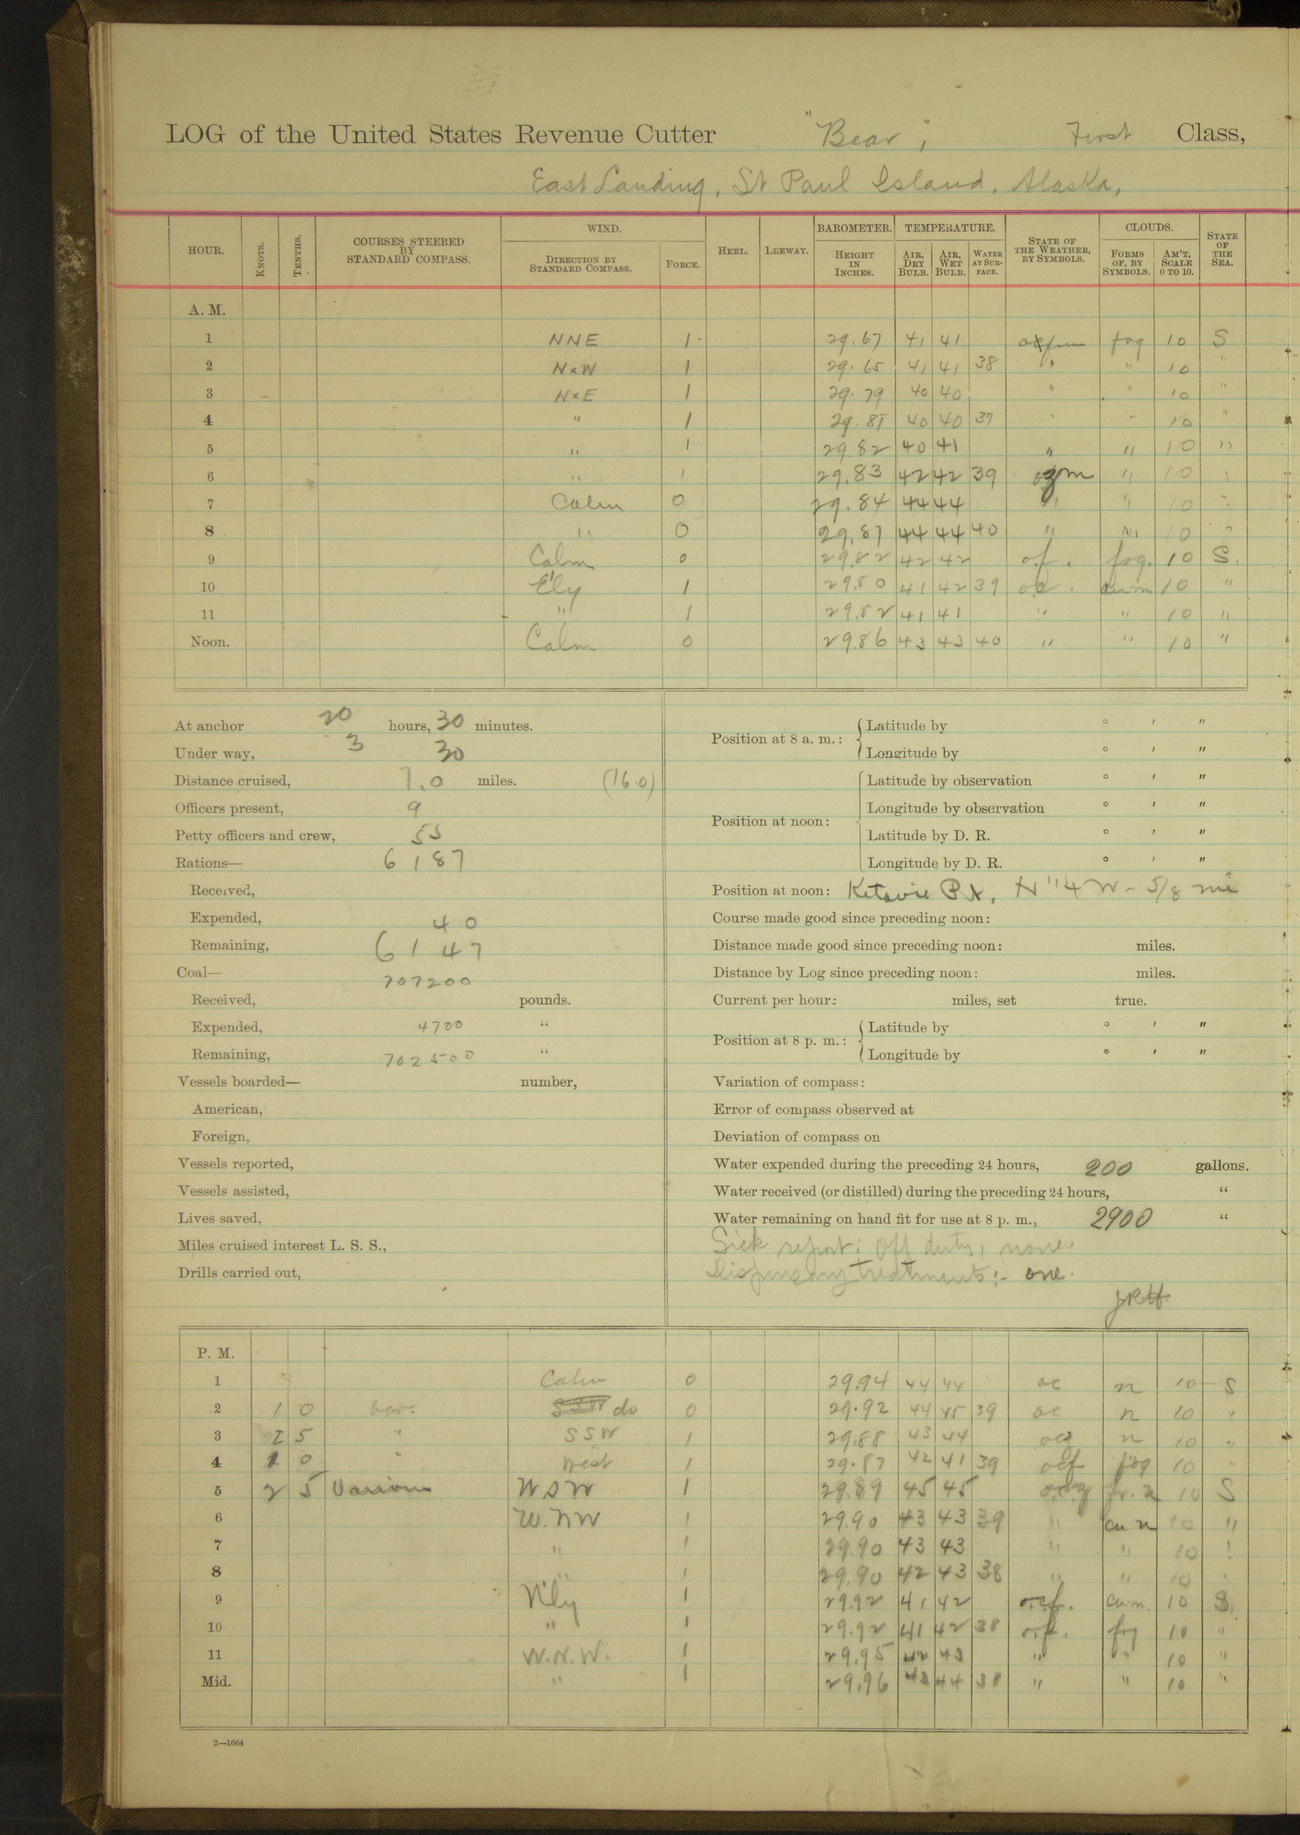 LOG of the United States Revenue Cutter "Bear", First Class,
East Landing, St Paul Island, Alaska,
HOUR. KNOTS. TENTHS. COURSES STEERED BY STANDARD COMPASS. WIND. DIRECTION BY STANDARD COMPASS. FORCE. HEEL. LEEWAY. BAROMETER. HEIGHT IN INCHES. TEMPERATURE. AIR, DRY BULB. AIR, WET BULB. WATER AT SURFACE. STATE OF THE WEATHER, BY SYMBOLS. CLOUDS. FORMS OF, BY SYMBOLS. AM'T, SCALE 0 TO 10. STATE OF THE SEA.
A. M.
1 NNE 1 29.67 41 41 fog 10 S
2 N×W 1 29.65 41 41 38 " " 10 "
3 N×E 1 29.79 40 40 " " 10 "
4 " 1 29.81 40 40 37 " " 10 "
5 " 1 29.82 40 41 " " 10 "
6 " 1 29.83 42 42 39 ozm " 10 "
7 Calm 0 29.84 44 44 " " 10 "
8 " 0 29.87 44 44 40 " " 10 "
9 Calm 0 29.82 42 42 o.f. fog. 10 S.
10 E'ly 1 29.80 41 42 39 o.c. cum 10 "
11 " 1 29.82 41 41 " " 10 "
Noon. Calm 0 29.86 43 43 40 " " 10 "
At anchor 20 hours, 30 minutes.
Under way, 3 30
Distance cruised, 7.0 miles. (16.0)
Officers present, 9
Petty officers and crew, 55
Rations— 6187
Received,
Expended, 40
Remaining, 6147
Coal— 707200
Received, pounds.
Expended, 4700 "
Remaining, 702500 "
Vessels boarded— number,
American,
Foreign,
Vessels reported,
Vessels assisted,
Lives saved,
Miles cruised interest L. S. S.,
Drills carried out,
Position at 8 a. m.: Latitude by ° ′ ″
Longitude by ° ′ ″
Position at noon: Latitude by observation ° ′ ″
Longitude by observation ° ′ ″
Latitude by D. R. ° ′ ″
Longitude by D. R. ° ′ ″
Position at noon: Ketavie Pt, N "4 W - 5/8 mi
Course made good since preceding noon:
Distance made good since preceding noon: miles.
Distance by Log since preceding noon: miles.
Current per hour: miles, set true.
Position at 8 p. m.: Latitude by ° ′ ″
Longitude by ° ′ ″
Variation of compass:
Error of compass observed at
Deviation of compass on
Water expended during the preceding 24 hours, 200 gallons.
Water received (or distilled) during the preceding 24 hours, "
Water remaining on hand fit for use at 8 p. m., 2900 "
Sick report: Off duty, none.
Dispensary treatments:- one.
P. M.
1 Calm 0 29.94 44 44 oc n 10 S
2 1 0 var. do 0 29.92 44 45 39 oc n 10 "
3 2 5 " SSW 1 29.88 43 44 n 10 "
4 1 0 " West 1 29.87 42 41 39 ocf fog 10 "
5 2 5 Various WSW 1 29.89 45 45 10 S
6 W.NW 1 29.90 43 43 39 " cu n 10 "
7 " 1 29.90 43 43 " " 10 "
8 " 1 29.90 42 43 38 " " 10 "
9 N'ly 1 29.92 41 42 o.c.f. cu-n. 10 S.
10 " 1 29.92 41 42 38 o.f. fog 10 "
11 W.N.W. 1 29.95 42 43 " " 10 "
Mid. " 1 29.96 43 44 38 " " 10 "
2—1664